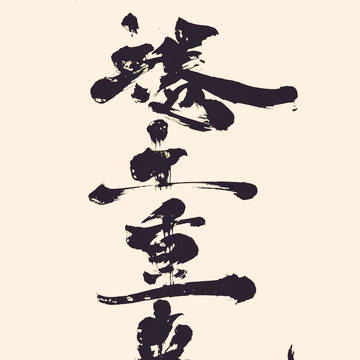 捲土重